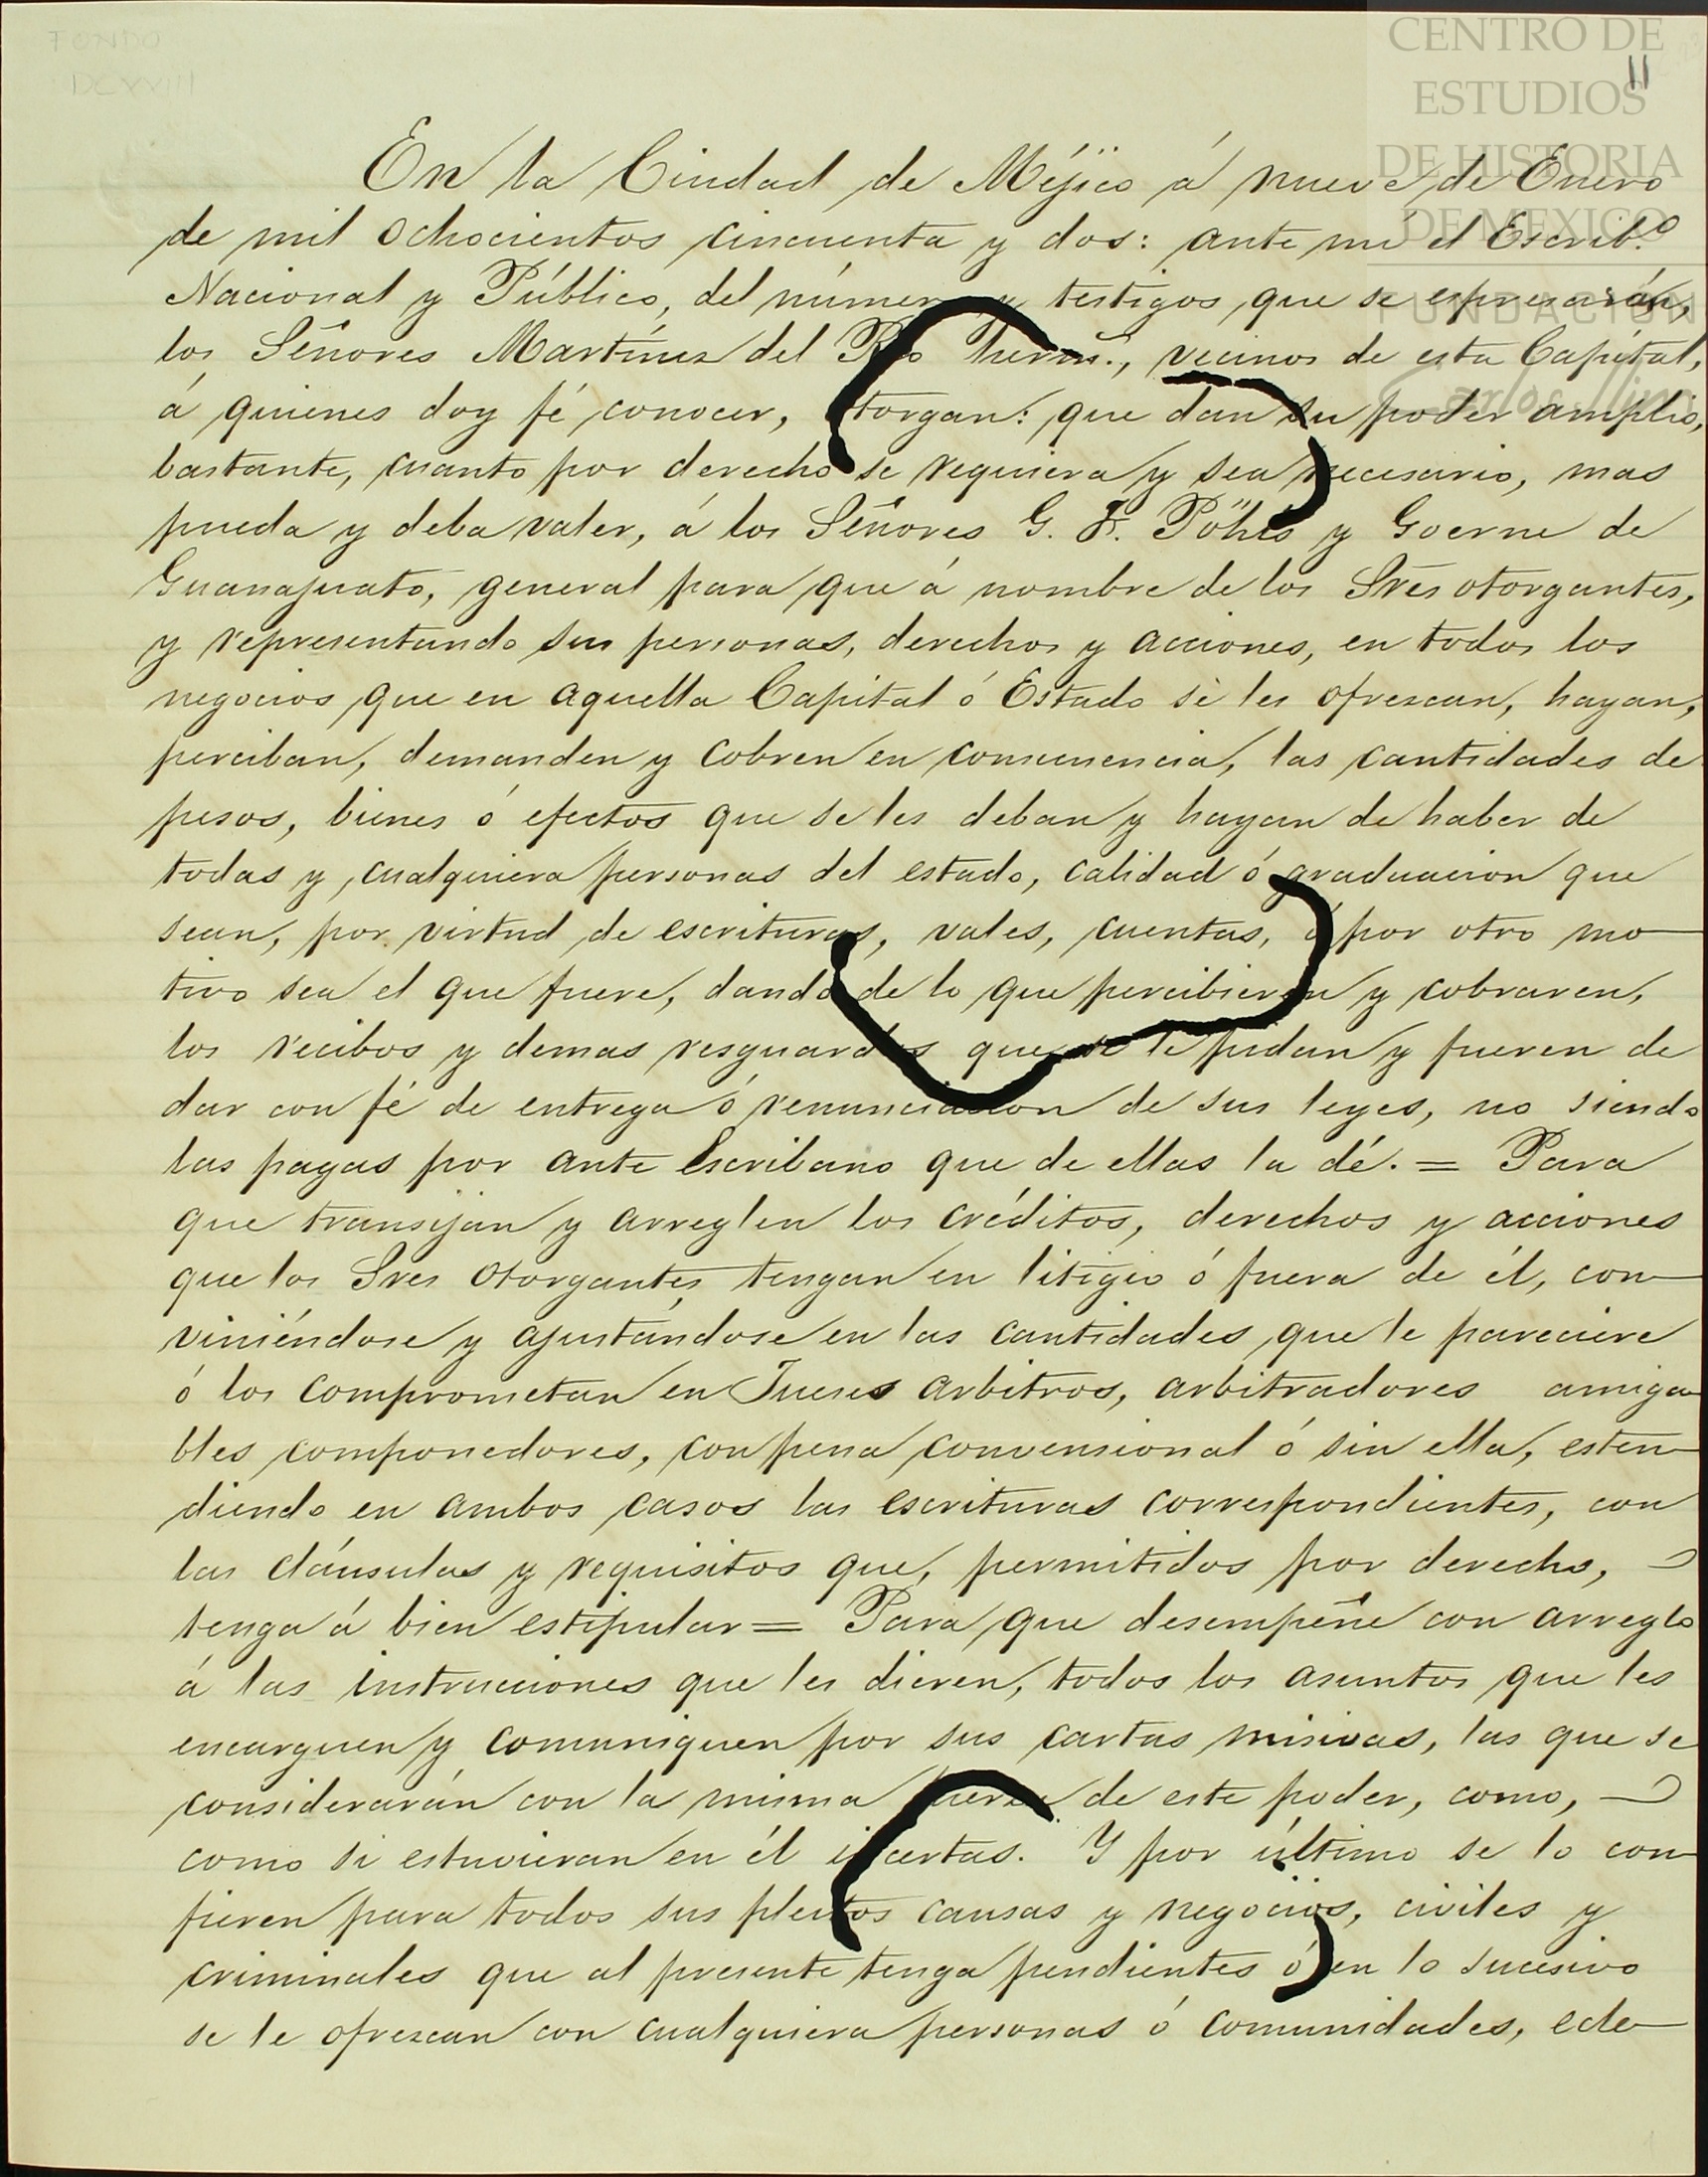 FONDO
DCXVIII
CENTRO DE
ESTUDIOS
DE HISTORIA
DE MEXICO
FUNDACIÓN
Carlos Slim
11
En la Ciudad de Méjico á nueve de Enero
de mil ochocientos cincuenta y dos: ante mí el Escrib.º
Nacional y Público, del número y testigos que se espresarán,
los Señores Martínez del Río herms., vecinos de esta Capital,
á quienes doy fé conocer, otorgan: que dan su poder amplio,
bastante, cuanto por derecho se requiera y sea necesario, mas
pueda y deba valer, á los Señores G. F. Pöhls y Goerne de
Guanajuato, general para que á nombre de los Sres otorgantes,
y representando sus personas, derechos y acciones, en todos los
negocios que en aquella Capital ó Estado se les ofrezcan, hayan,
perciban, demanden y cobren en comunencia, las cantidades de
pesos, bienes ó efectos que se les deban y hayan de haber de
todas y cualquiera personas del estado, calidad ó graduacion que
sean, por virtud de escrituras, vales, cuentas, ó por otro mo
tivo sea el que fuere, dando de lo que percibieren y cobraren,
los recibos y demas resguardos que se le pidan y fueren de
dar con fé de entrega ó renunciacion de sus leyes, no siendo
las pagas por ante Escribano que de ellas la dé. = Para
que transijan y arreglen los créditos, derechos y acciones
que los Sres Otorgantes tengan en litigio ó fuera de él, con
viniéndose y ajustándose en las cantidades que le pareciere
ó los comprometan en Jueses arbitros, arbitradores amiga
bles componedores, con pena convensional ó sin ella, esten
diendo en ambos casos las escrituras correspondientes, con
las cláusulas y requisitos que, permitidos por derecho,
tenga á bien estipular = Para que desempeñe con arreglo
á las instrucciones que les dieren, todos los asuntos que les
encarguen y comuniquen por sus cartas misivas, las que se
considerarán con la misma fuerza de este poder, como,
como si estuvieran en él incertas. Y por último se lo con
fieren para todos sus pleitos causas y negocios, civiles y
criminales que al presente tenga pendientes ó en lo sucesivo
se le ofrezcan con cualquiera personas ó comunidades, ecle